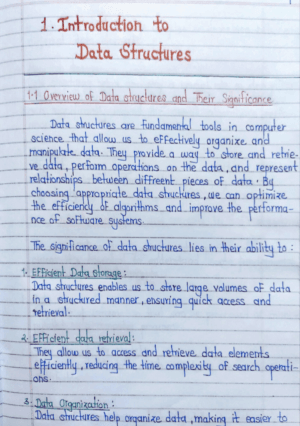 1. Introduction to
Data Structures
1.1 Overview of Data structures and Their Significance
Data structures are fundamental tools in computer
science that allow us to effectively organize and
manipulate data. They provide a way to store and retrie-
ve data, perform operations on the data, and represent
relationships between diffreent pieces of data. By
choosing appropriate data structures, we can optimize
the efficiency of algorithms and improve the performa-
nce of software systems.
The significance of data structures lies in their ability to :
1. Efficient Data Storage :
Data structures enables us to store large volumes of data
in a structured manner, ensuring quick access and
retrieval.
2. Efficient data retrieval:
They allow us to access and retrieve data elements
efficiently, reducing the time complexity of search operati-
ons.
3. Data Organization :
Data structures help organize data, making it easier to